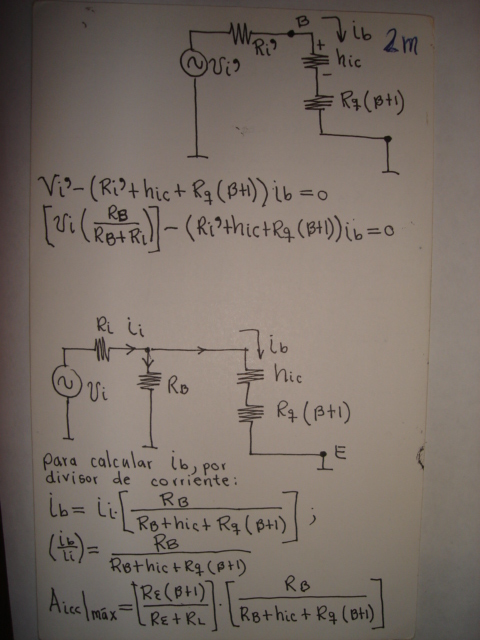 B
ib
2m
Ri'
+
hic
-
vi'
Rq(β+1)
Vi'-(Ri'+hic+Rq(β+1))ib=0
[vi(RB/RB+Ri)]-(Ri'+hic+Rq(β+1))ib=0
Ri ii
ib
hic
vi
RB
Rq(β+1)
E
para calcular ib, por
divisor de corriente:
ib=ii·[RB/RB+hic+Rq(β+1)];
(ib/ii)=RB/RB+hic+Rq(β+1)
Aicc|máx=[RE(β+1)/RE+RL]·[RB/RB+hic+Rq(β+1)]